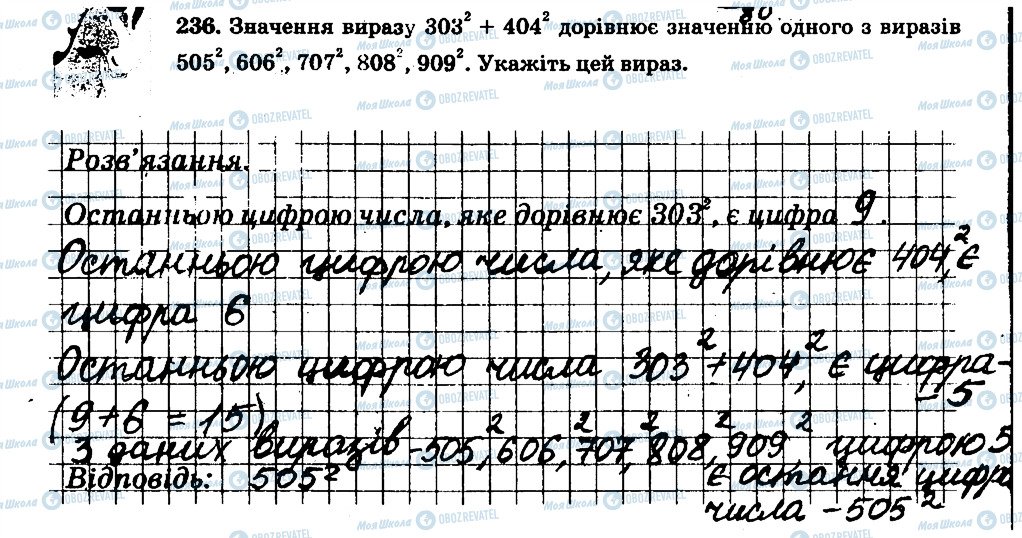 80
236. Значення виразу 303² + 404² дорівнює значенню одного з виразів
505², 606², 707², 808², 909². Укажіть цей вираз.
Розв’язання.
Останньою цифрою числа, яке дорівнює 303², є цифра 9.
Останньою цифрою числа, яке дорівнює 404², є
цифра 6
Останньою цифрою числа 303² + 404², є цифра -
- 5
(9+6 = 15)
З даних виразів - 505², 606², 707², 808², 909² цифрою 5
Відповідь: 505² є остання цифра
числа - 505²
МояШкола OBOZREVATEL